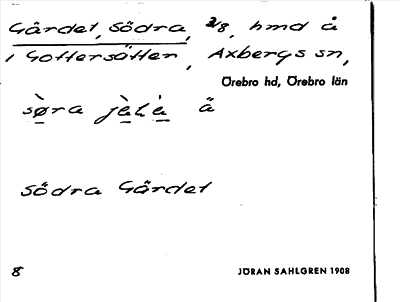 Gärdet, Södra, 2/8, hmd å
1 Gottersätter, Axbergs sn,
Örebro hd, Örebro län
sø̀ra jèlè ä
Södra Gärdet
8 JÖRAN SAHLGREN 1908